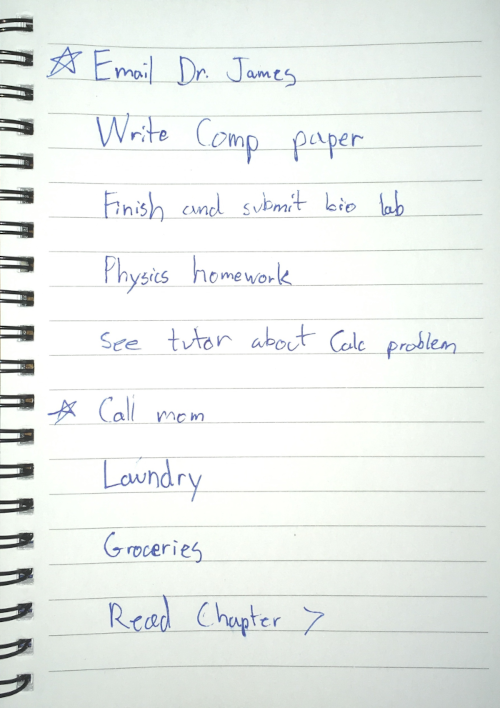 ☆ Email Dr. James
Write Comp paper
Finish and submit bio lab
Physics homework
See tutor about Calc problem
☆ Call mom
Laundry
Groceries
Read Chapter 7